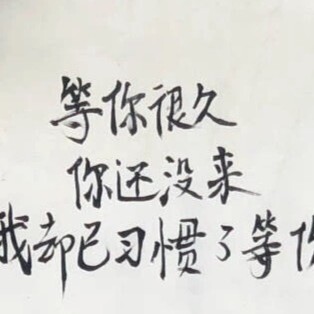 等你很久
你还没来
我却已习惯了等你